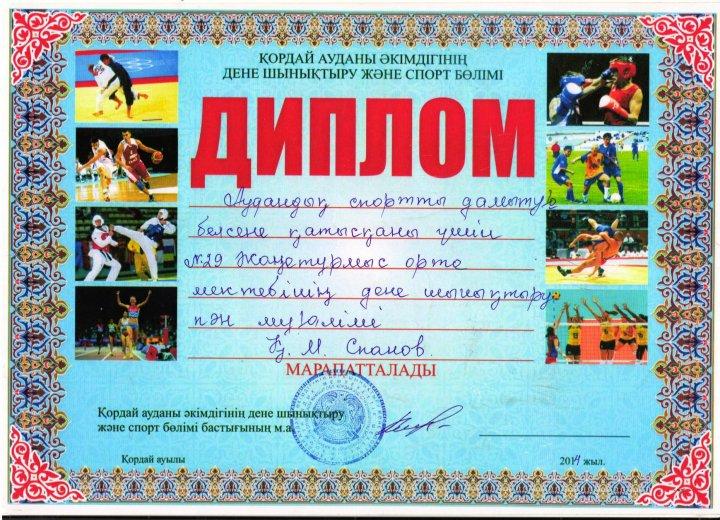 ҚОРДАЙ АУДАНЫ ӘКІМДІГІНІҢ
ДЕНЕ ШЫНЫҚТЫРУ ЖӘНЕ СПОРТ БӨЛІМІ
ДИПЛОМ
Аудандық спортты дамытуға
белсене қатысқаны үшін
№29 Жаңатұрмыс орта
мектебінің дене шынықтыру
пән мұғалімі
Қ. М. Спанов.
МАРАПАТТАЛАДЫ
Қордай ауданы әкімдігінің дене шынықтыру
және спорт бөлімі бастығының м.а.
Қордай ауылы
2014 жыл.